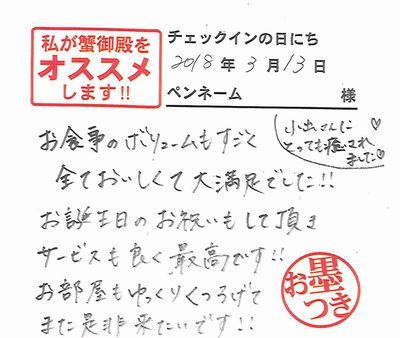 私が蟹御殿を
オススメ
します!!
チェックインの日にち
2018年3月13日
ペンネーム 様
小出さんに
とっても癒され
ました♡
お食事のボリュームもすごく
全ておいしくて大満足でした!!
お誕生日のお祝いもして頂き
サービスも良く最高です!!
お部屋もゆっくりくつろげて
また是非来たいです!!
お墨
つき